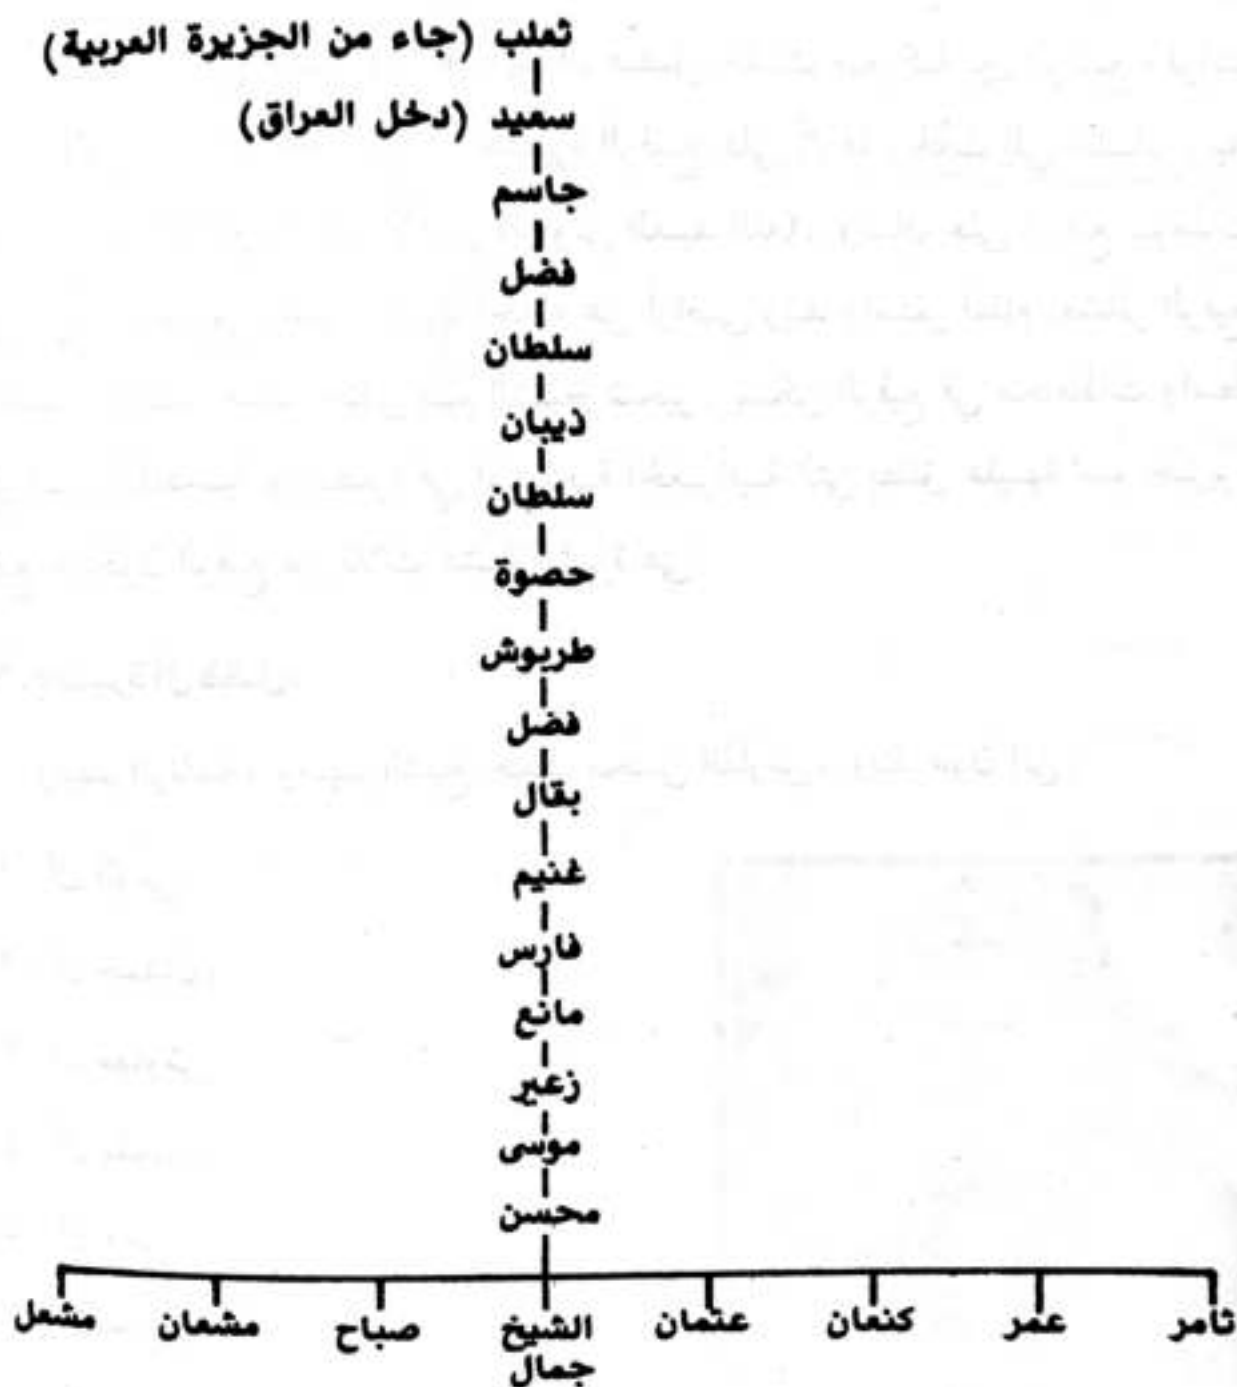 ثعلب (جاء من الجزيرة العربية)
سعيد (دخل العراق)
جاسم
فضل
سلطان
ذيبان
سلطان
حصوة
طربوش
فضل
بقال
غنيم
فارس
مانع
زعير
موسى
محسن
ثامر عمر كنعان عثمان الشيخ جمال صباح مشعان مشعل